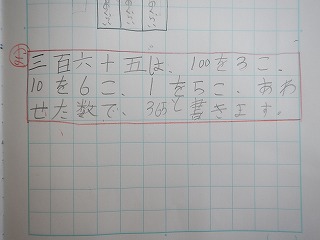 三百六十五は、100を3こ、
10を6こ、1を5こ、あわ
せた数で、365と書きます。